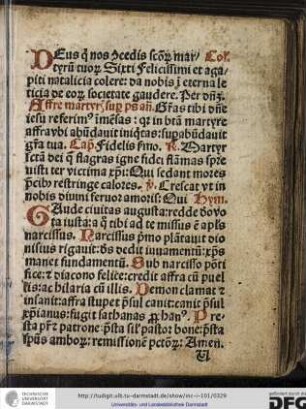 DEus q̇ nos ꝯcedis sctōꝝ mar/ Col.
tyrū tuoꝝ Sixti Felicissimi et aga/
piti natalicia colere: da nobis ĩ eterna le
ticia de eoꝝ societate gaudere. Per dñꝫ.
Affre martyrꝭ sup̄ ps añ. Grãs tibi dñe
iesu referim⁹ īmēsas: qꝛ in btā martyre
affra vbi abūdauit iniq̇tas: supabūdauit
gr̄a tua. Cap̄. Fidelis smo. R. Martyr
sctā dei q̄ flagras igne fidei flāmas spre
uisti ter victima xp̄i: Qui sedant mores
p̄cibꝰ restringe calores. v. Crescat vt in
nobis diuini feruor amoris: Qui Hym.
GAude ciuitas augusta: redde dovo
ta iusta: a q̄ tibi ad te missus ē apl's
narcissus. Narcissus p̄mo plātauit dio
nisius rigauit: ds dedit iuuamentū: xp̄s
manet fundamentū. Sub narcisso pōti
fice: ⁊ diacono felice: credit affra cū puel
lis: ac hilaria cū illis. Demon clamat ⁊
insanit: affra stupet p̄sul canit: canit p̄sul
xp̄ianus: fugit sathanas ꝓhan⁹. Pre
sta pr̄ patrone: p̄sta fili pastor bone: p̄sta
sp̄us amboꝝ: remissionē pctōꝝ: Amen.
http://tudigit.ulb.tu-darmstadt.de/show/inc-i-101/0329
Universitäts- und Landesbibliothek Darmstadt